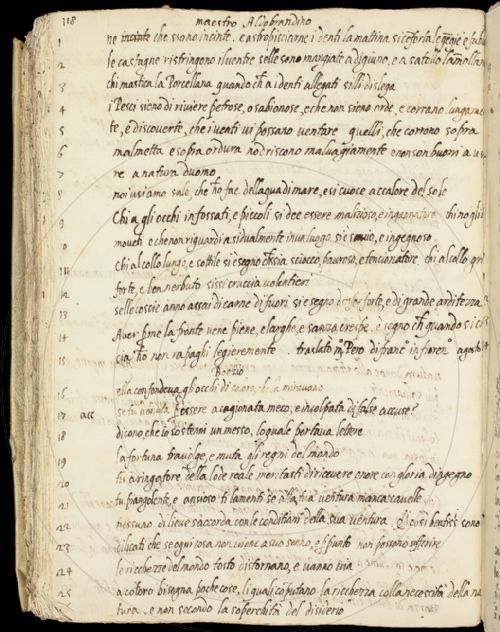 118 maestro Aldobrandino
1 ne incinte che sono incinte. e astropicciarne i denti la mattina si conforta
2 le castagne ristringono il ventre selle sono mangiate a digiuno, e a satollo
3 chi mastica la Porcellana quando ch'a i denti allegati silli dislega
4 i Pesci sieno di riviere petrose, o sabionose, e che non sieno orde, e corrano
5 te, e discoverte, che i venti vi possano ventare quelli, che corrono sopra
6 malmetta e sopra ordura nodriscono malvagiamente e non son buoni a
7 re a natura d'uomo
8 noi usiamo sale, che fac. dell'aqua di mare, e si cuoce a calore del sole
9 Chi a gli occhi infossati, e piccoli si dee essere malizioso, e ingannatore chi no gli
0 moventi e che non riguardi asidualmente in un luogo. si è savio, e ingegnoso
11 Chi al collo lungo, e sottile si è segno sciocco, pauroso, e tencionatore chi al collo
12 forte, e ben nerbuto sissi cruccia volentieri
13 selle coscie anno assai di carne di fuori si è segno desser forte, e di grande arditezza
14 Aver ferme la fronte vene piene, e larghe, e sanza crespe. e segno ch' quando si
15 cia non rapaghi legieremente. traslato Pero di in agosto
Boezio
16 ella confondeva gli occhi di coloro che la miravano
17 acc se tu essere acagionata meco, e involpata di false accuse?
18 dicono, che io sostenni un messo, lo quale portava lettere
19 la fortuna travolge, e muta gli regni del mondo
20 tu aringatore della lode reale meritasti di ricevere onore con gloria d'ingegno
21 tu piangolente, e ansioso ti lamenti se alla tua ventura manca cavelle
22 nessuno di lieve s'accorda con le conditioni della sua ventura. E così sono
23 dilicati che se ogni cosa non viene a suo senno, e appunto non possono sofferire
24 le ricchezze del mondo tosto distornano, e vanno via
25 a coloro bisogna poche cose, li quali coputano la ricchezza colla necessità della na
tura. e non secondo la soperchità del disiderio